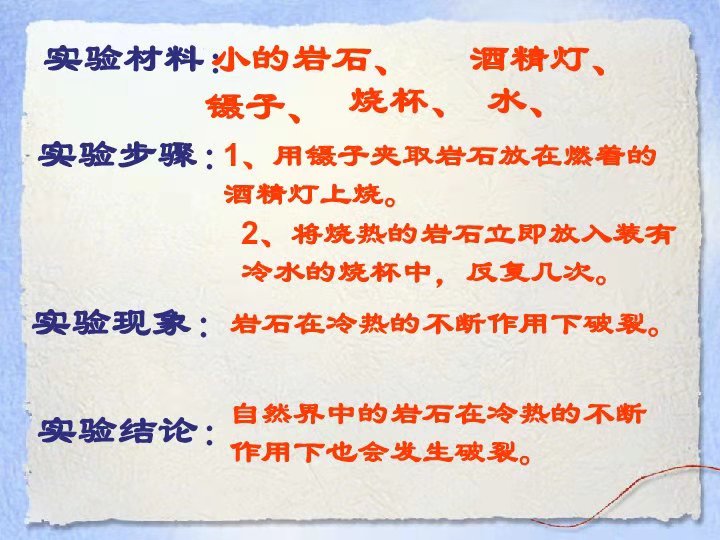 实验材料：小的岩石、 酒精灯、
镊子、 烧杯、 水、
实验步骤：1、用镊子夹取岩石放在燃着的
酒精灯上烧。
2、将烧热的岩石立即放入装有
冷水的烧杯中，反复几次。
实验现象：岩石在冷热的不断作用下破裂。
自然界中的岩石在冷热的不断
实验结论：
作用下也会发生破裂。